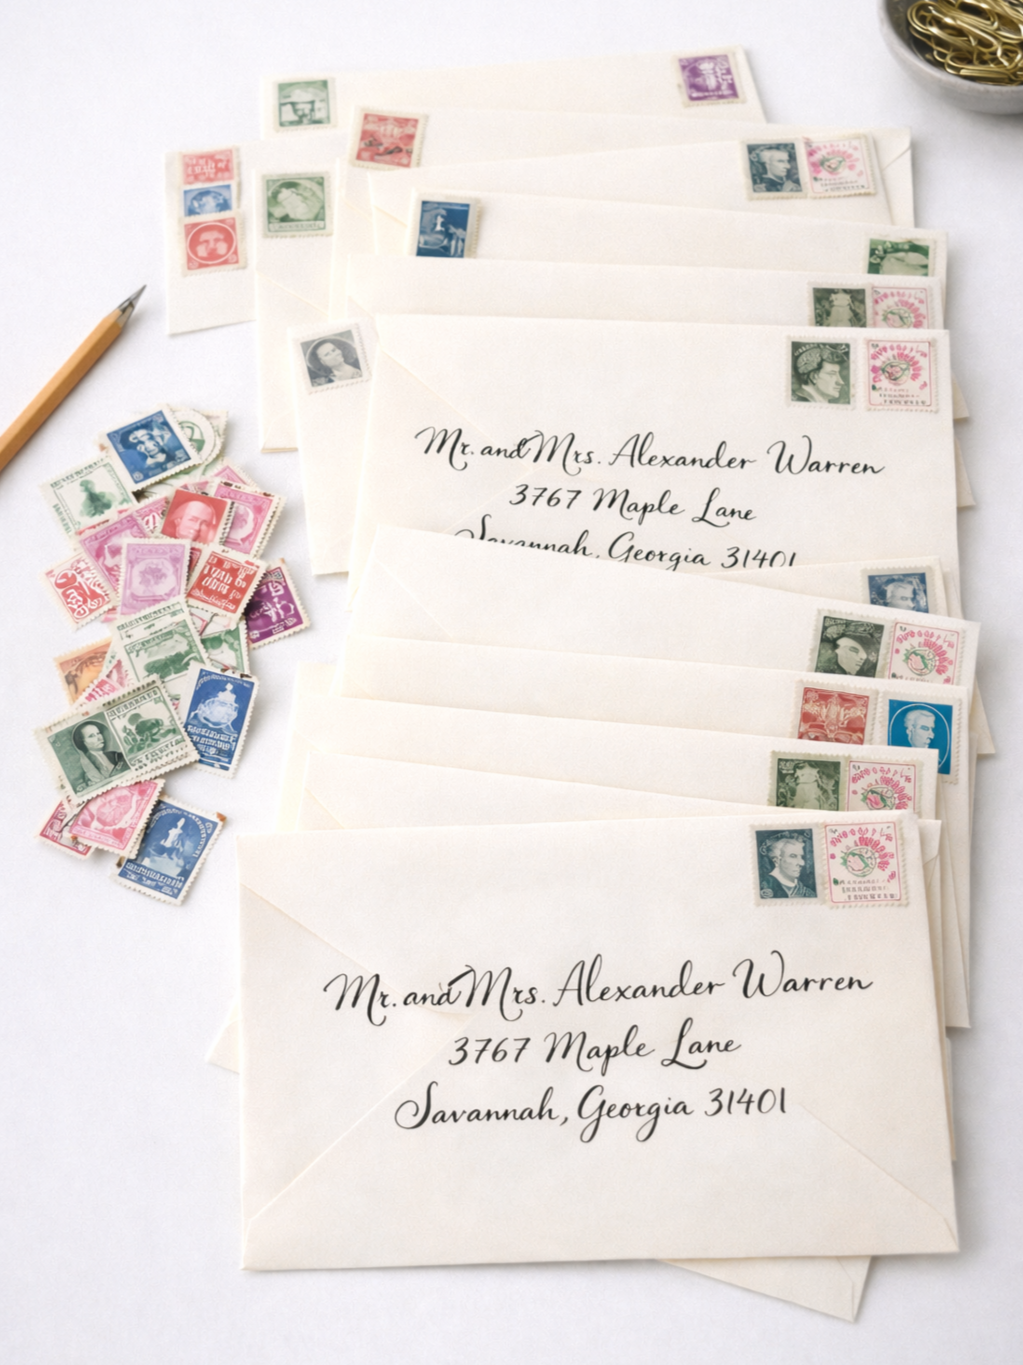 Mr. and Mrs. Alexander Warren
3767 Maple Lane
Savannah, Georgia 31401
Mr. and Mrs. Alexander Warren
3767 Maple Lane
Savannah, Georgia 31401